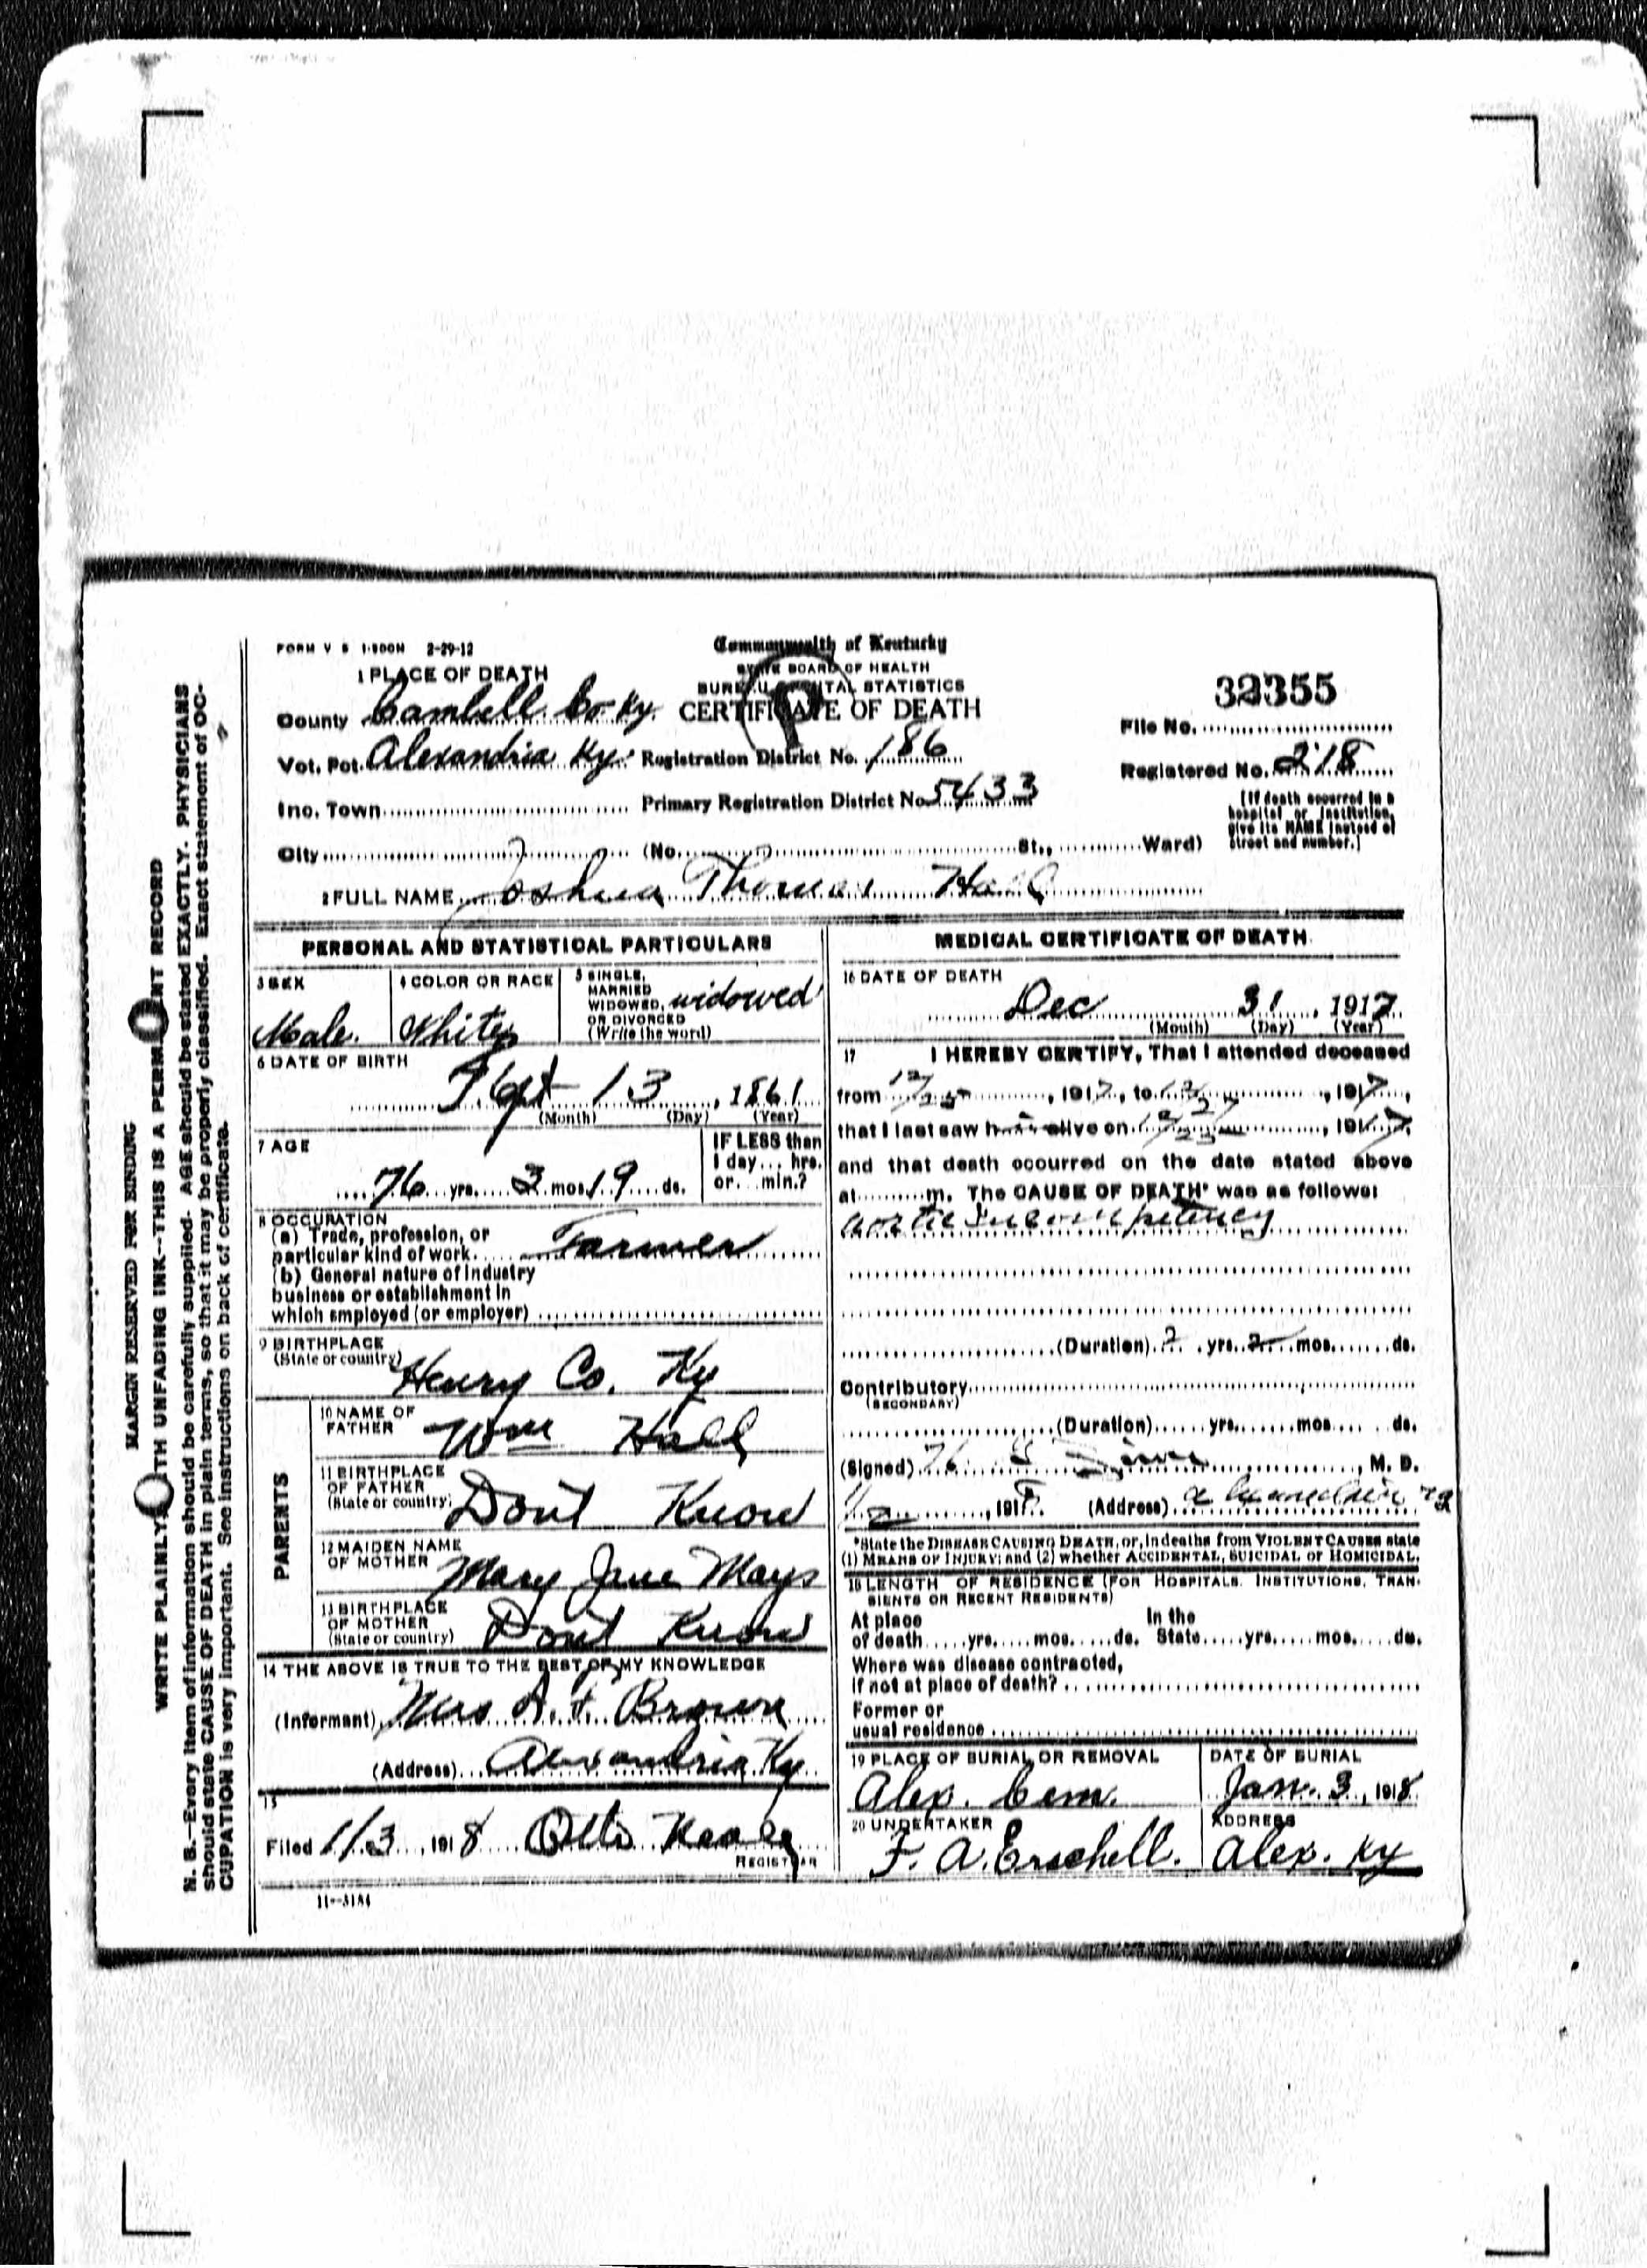 FORM V S 1-500M 2-29-12
Commonwealth of Kentucky
STATE BOARD OF HEALTH
BUREAU VITAL STATISTICS
CERTIFICATE OF DEATH
32355
File No.
Registered No. 218
(If death occurred in a hospital or institution, give its NAME instead of street and number.)
1 PLACE OF DEATH
County Cambell Co Ky.
Vot. Pct. Alexandria Ky. Registration District No. 186
Inc. Town Primary Registration District No. 5433
City (No. St., Ward)
2 FULL NAME Joshua Thomas Hall
PERSONAL AND STATISTICAL PARTICULARS
3 SEX
Male.
4 COLOR OR RACE
White
5 SINGLE, MARRIED WIDOWED, OR DIVORCED (Write the word)
widowed
6 DATE OF BIRTH
Sept 13, 1861
(Month) (Day) (Year)
7 AGE
76 yrs. 3 mos. 19 ds.
IF LESS than 1 day ... hrs. or ... min.?
8 OCCUPATION
(a) Trade, profession, or
particular kind of work Farmer
(b) General nature of industry
business or establishment in
which employed (or employer)
9 BIRTHPLACE
(State or country)
Henry Co. Ky
PARENTS
10 NAME OF FATHER
Wm Hall
11 BIRTHPLACE OF FATHER (State or country)
Dont Know
12 MAIDEN NAME OF MOTHER
Mary Jane Mays
13 BIRTHPLACE OF MOTHER (State or country)
Dont Know
14 THE ABOVE IS TRUE TO THE BEST OF MY KNOWLEDGE
(Informant) Mrs Brown
(Address) Alexandria Ky
15
Filed 1/3, 1918 Otto
REGISTRAR
11--3184
MEDICAL CERTIFICATE OF DEATH
16 DATE OF DEATH
Dec 31, 1917
(Month) (Day) (Year)
17 I HEREBY CERTIFY, That I attended deceased
from 12/25, 1917, to, 1917,
that I last saw h alive on, 1917,
and that death occurred on the date stated above
at m. The CAUSE OF DEATH* was as follows:
aortic Incompetency
(Duration) 2 yrs. 2 mos. ds.
Contributory
(SECONDARY)
(Duration) yrs. mos. ds.
(Signed), M. D.
1/2, 1918. (Address)
*State the DISEASE CAUSING DEATH, or, in deaths from VIOLENT CAUSES state
(1) MEANS OF INJURY; and (2) whether ACCIDENTAL, SUICIDAL or HOMICIDAL.
18 LENGTH OF RESIDENCE (FOR HOSPITALS, INSTITUTIONS, TRAN-
SIENTS OR RECENT RESIDENTS)
At place In the
of death yrs. mos. ds. State yrs. mos. ds.
Where was disease contracted,
if not at place of death?
Former or
usual residence
19 PLACE OF BURIAL OR REMOVAL
Alex. Cem.
DATE OF BURIAL
Jan. 3, 1918.
20 UNDERTAKER
F. A. Erschell.
ADDRESS
Alex. Ky
MARGIN RESERVED FOR BINDING
WRITE PLAINLY WITH UNFADING INK--THIS IS A PERMANENT RECORD
N. B.--Every item of information should be carefully supplied. AGE should be stated EXACTLY. PHYSICIANS
should state CAUSE OF DEATH in plain terms, so that it may be properly classified. Exact statement of OC-
CUPATION is very important. See instructions on back of certificate.